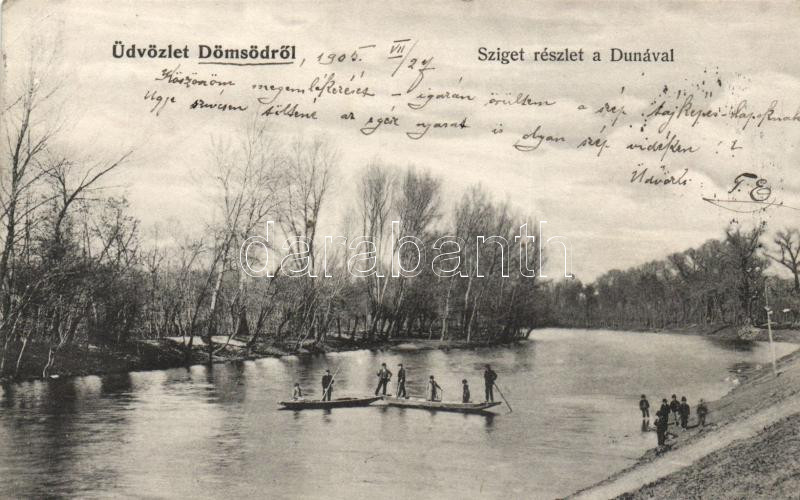 Üdvözlet Dömsödről, 1905 VII/27
Sziget részlet a Dunával
Köszönöm megemlékezését - igazán örültem a szép tájképes-lapoknak
Ugye szivesen töltené az egész nyarat is olyan szép vidéken !?
Üdvözli
darabanth